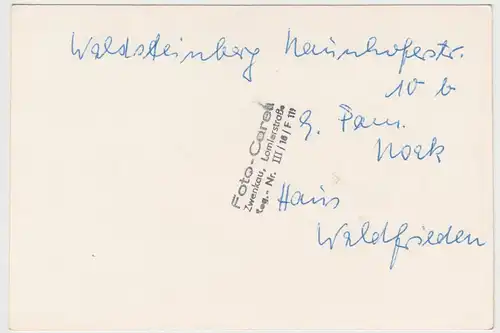 Waldsteinberg Naunhoferstr.
10 b
b. Fam.
Noek
Haus
Waldfrieden
Foto-Carei
Zwenkau, Lomlerstraße
Reg.- Nr. III/18/F 111